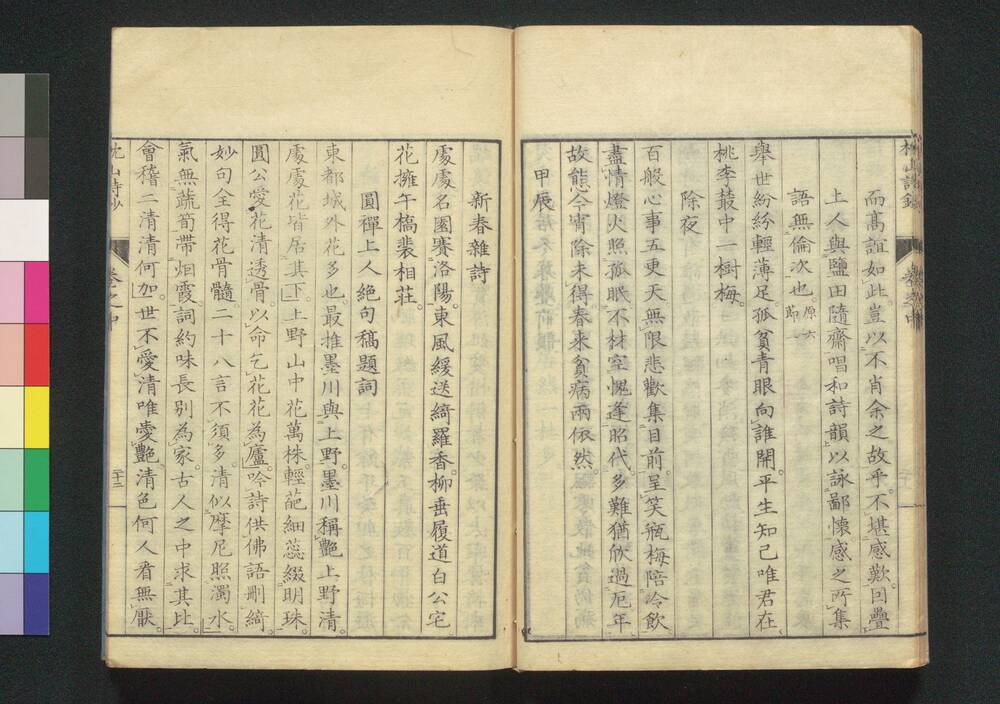 而髙誼如此豈以不肖余之故乎不堪感歎回疊
上人與鹽田隨齋唱和詩韻以詠鄙懷感之所集
語無倫次也 原六節一
舉世紛紛輕薄足孤貧青眼向誰開平生知己唯君在
桃李叢中一樹梅
除夜
百般心事五更天無限悲歡集目前呈笑瓶梅陪冷飲
盡情燈火照孤眠不材空愧逢昭代多難猶欣過厄年
故態今宵除未得春来貧病兩依然
甲辰
新春雜詩
處處名園賽洛陽東風緩送綺羅香柳垂履道白公宅
花擁午橋裴相莊
圓禪上人絶句稿題詞
東都城外花多也最推墨川與上野墨川稱艷上野清
處處花皆居其下上野山中花萬株輕葩細蕊綴明珠
圓公愛花清透骨以命乞花花為廬吟詩供佛語刪綺
妙句全得花骨髓二十八言不須多清似摩尼照濁水
氣無蔬筍帶烟霞詞約味長別為家古人之中求其比
會稽二清清何加世不愛清唯愛艷清色何人看無厭
卷之中
二十三